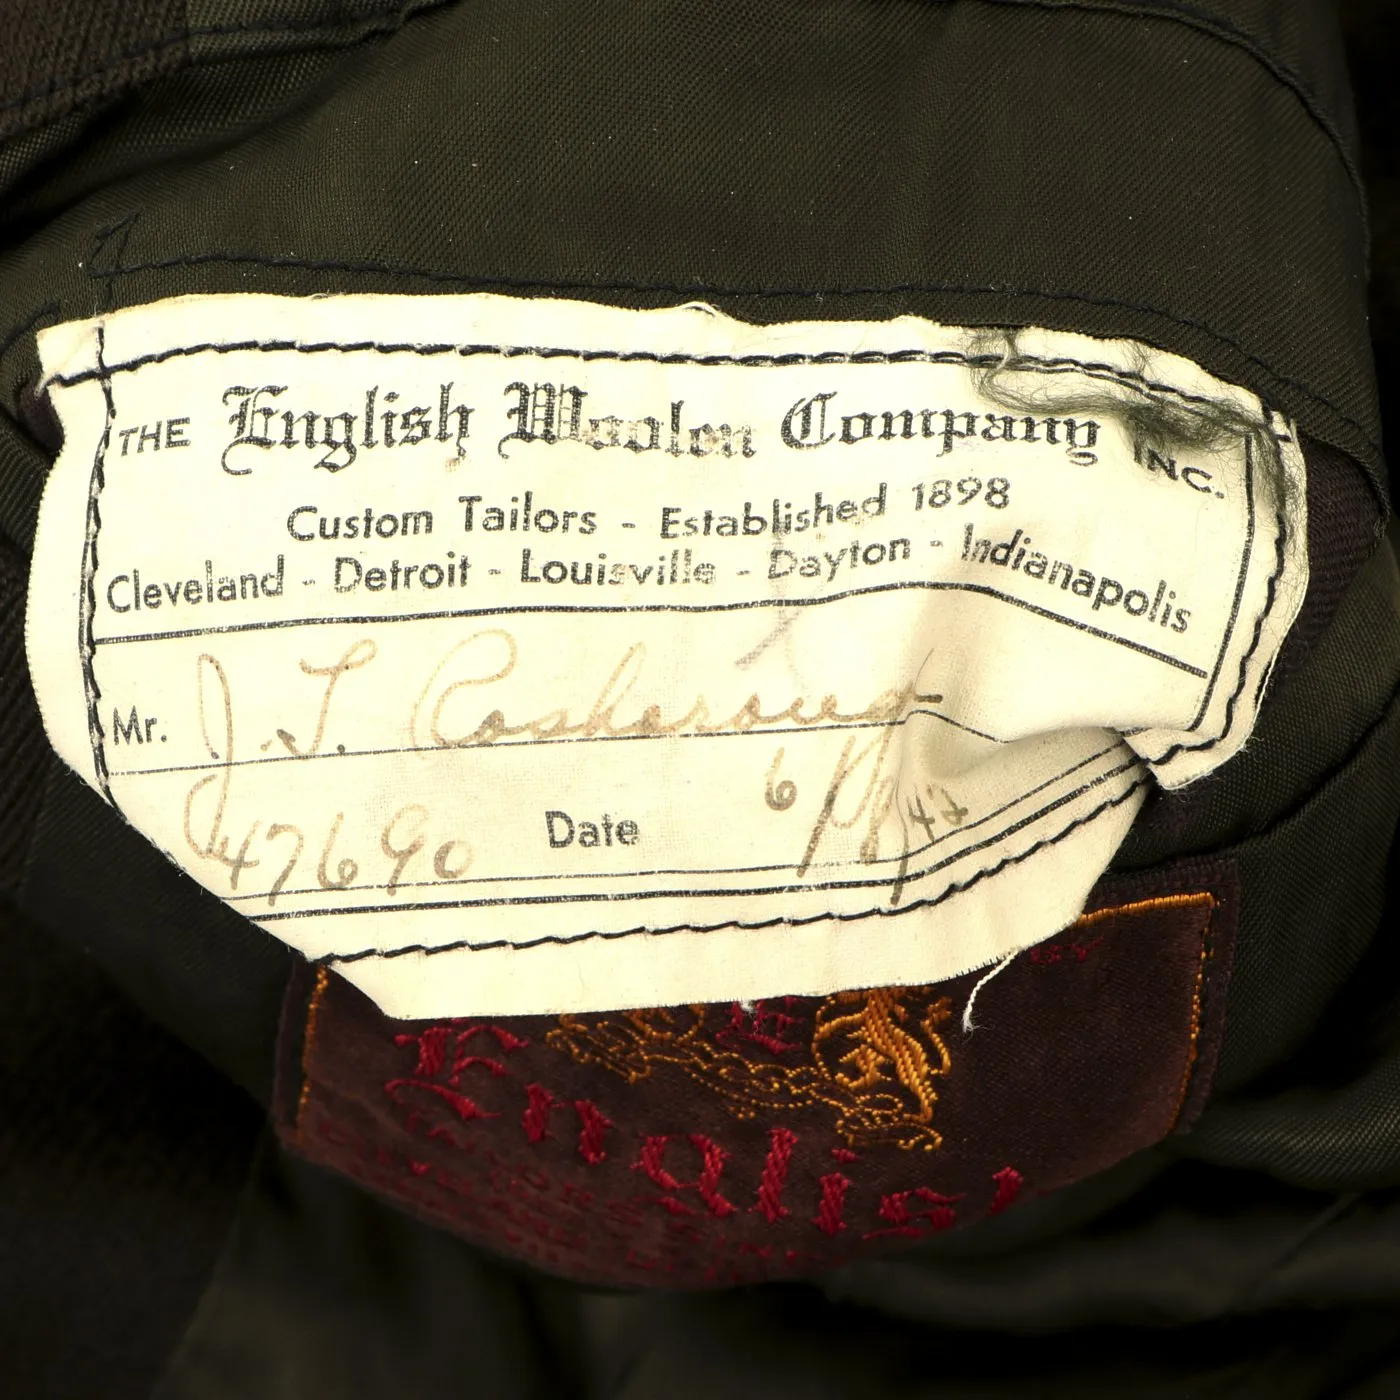 THE English Woolen Company INC.
Custom Tailors - Established 1898
Cleveland - Detroit - Louisville - Dayton - Indianapolis
Mr. J. T.
47690 Date 6/18/42
English